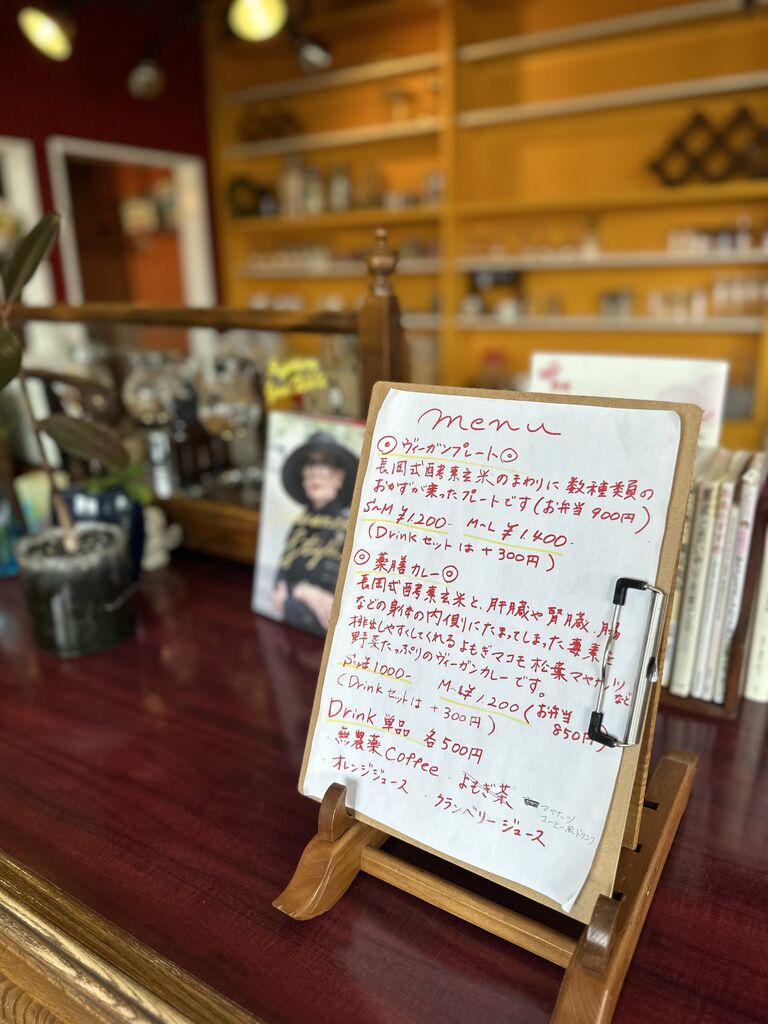 menu
◎ ヴィーガンプレート◎
長岡式酵素玄米のまわりに 数種類の
おかずが乗ったプレートです (お弁当 900円)
S~M ¥1.200- M~L ¥1.400-
(Drink セットは + 300円)
◎ 薬膳 カレー◎
長岡式酵素玄米と、肝臓や腎臓、腸
などの身体の内側にたまってしまった毒素を
排出しやすくしてくれるよもぎマコモ 松葉 マヤナッツ など
野菜たっぷりのヴィーガンカレーです。
S~M ¥1000- M~L ¥1.200 (お弁当 850円)
(Drink セットは + 300円)
Drink 単品 各500円
・無農薬 Coffee ・よもぎ茶
・オレンジジュース ・クランベリージュース
マヤナッツ
コーヒー風ドリンク